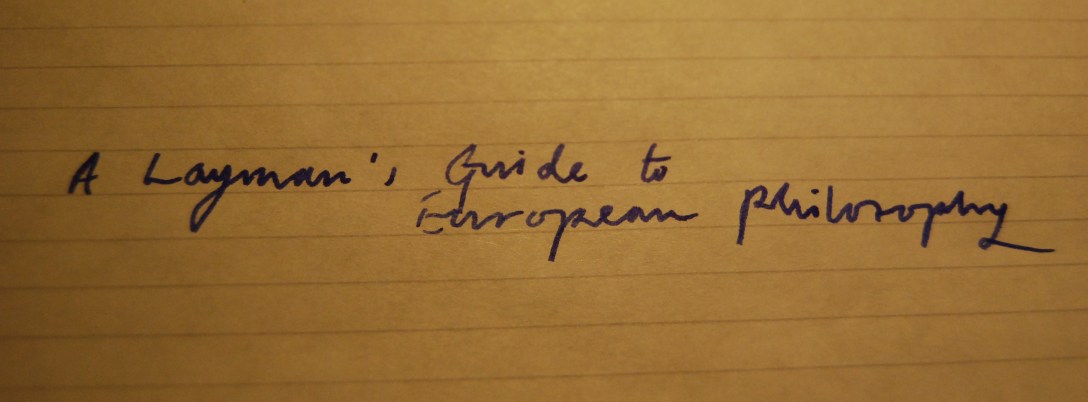 A Layman's Guide to
European Philosophy